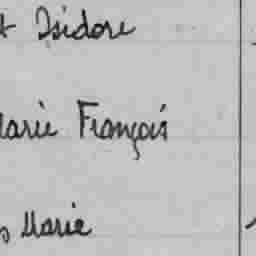 Isidore
Marie François
Marie